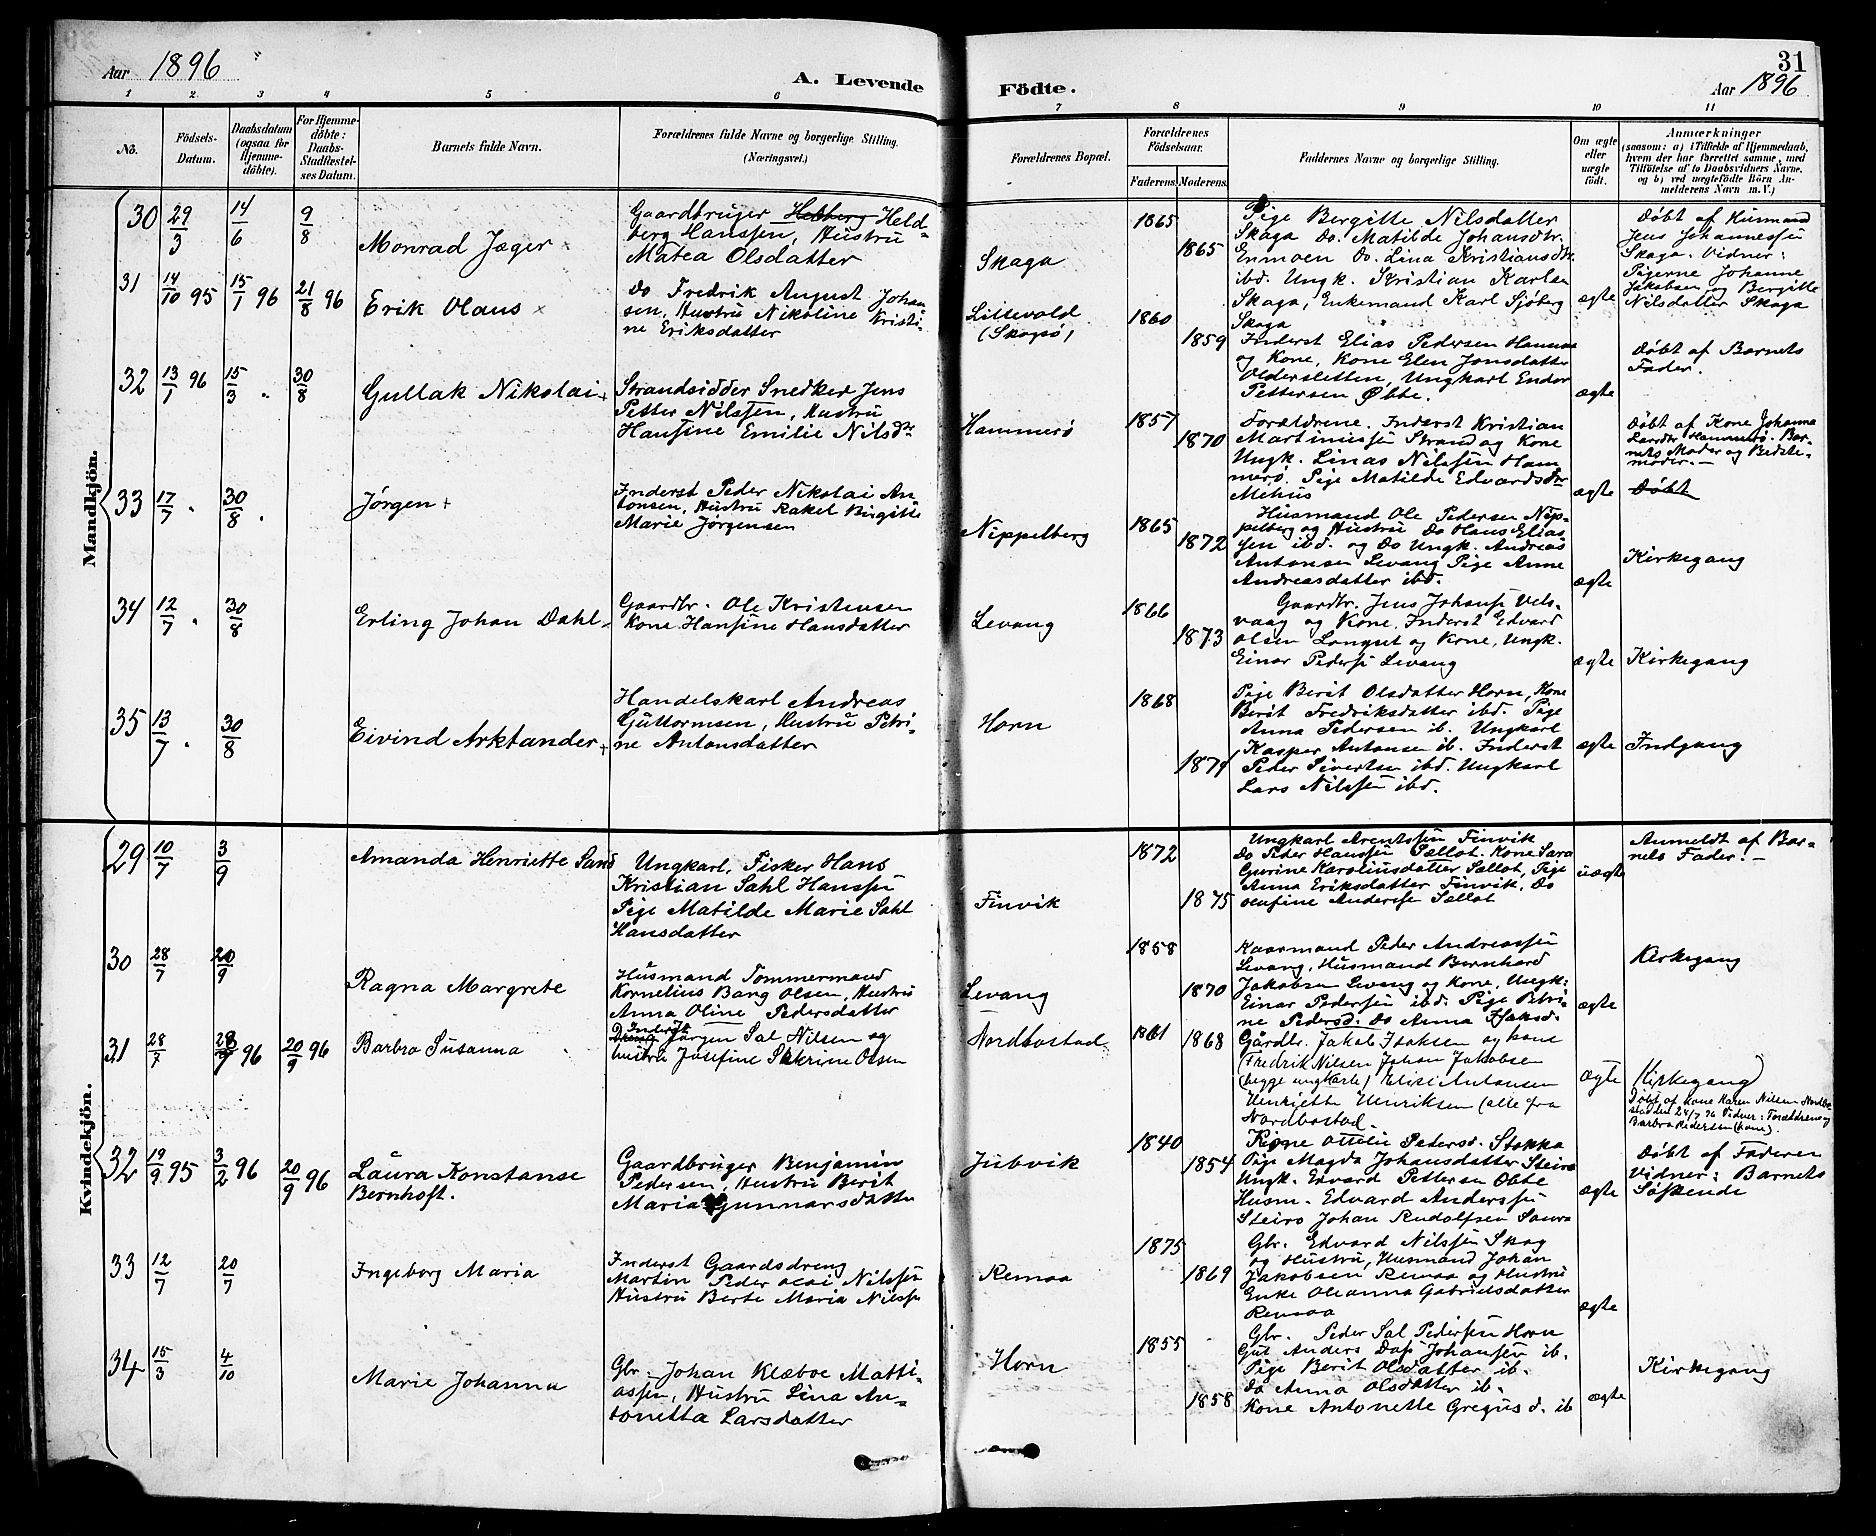 Aar 1896
A. Levende
Födte.
31
Aar 1896
1 2 3 4 5 6 7 8 9 10 11
No.
Födsels-
Datum.
Daabsdatum
(ogsaa for
Hjemme-
döbte).
For Hjemme-
döbte:
Daabs-
Stadfæstel-
ses Datum.
Barnets fulde Navn.
Forældrenes fulde Navne og borgerlige Stilling.
(Næringsvei.)
Forældrenes Bopæl.
Forældrenes
Födselsaar.
Faderens. Moderens.
Faddernes Navne og borgerlige Stilling.
Om ægte
eller
uægte
født.
Anmærkninger
(saasom: a) i Tilfælde af Hjemmedaab,
hvem der har forrettet samme, med
Tilföielse af to Daabsvidners Navne,
og b) ved uægtefödte Börn An-
melderens Navn m. V.)
Mandkjön.
30 29/3 14/6 9/8
Monrad Jæger
Gaardbruger Hebberg Held-
berg Hanssen, Hustru
Matea Olsdatter
Skaga
1865
1865
Pige Bergitte Nilsdatter
Skaga do. Matilde Johansdtr.
Enmoen do. Lina Kristiansdtr
ibd. Ungk. Kristian Karlsen
Skaga, Enkemand Karl Sjöberg
Skaga
ægte
Döbt af Husmand
Jens Johannessen
Skaga. Vidner:
Pigerne Johanne
Jakobsen og Bergitte
Nilsdatter Skaga
31 14/10 95 15/1 96 21/8 96
Erik Olaus
do Fredrik August Johan
sen, Hustru Nikoline Kristi-
ne Eriksdatter
Littevold
(Skogsö)
1860
1859
Inderst Elias Pedersen Hammerö
og Kone, Kone Elen Jonsdatter
Oldersletten, Ungkarl Endor
Pettersen Øbbe.
ægte
Döbt af Barnets
Fader.
32 13/1 96 15/3 " 30/8
Gullak Nikolai
Strandsidder Snedker Jens
Petter Nilssen, Hustru
Hansine Emilie Nilsdtr
Hammerö
1857
1870
Forældrene. Inderst Kristian
Martinussen Strand og Kone
Ungk. Linas Nilssen Ham
merö. Pige Matilde Edvardsdtr
Mehus
ægte
Döbt af Kone Johanna
Larsdtr Hammerö. Bar-
nets Moder og Bedste-
moder.
33 17/7 " 30/8 "
Jörgen
Inderst Peder Nikolai An-
tonsen, Hustru Rakel Birgitte
Marie Jörgensen
Nippelberg
1865
1872
Husmand Ole Pedersen Nip-
pelberg og Hustru do Hans Elias
sen ibd. og do Ungk. Andreas
Antonsen Levang Pige Anne
Andreasdatter ibd.
ægte
Döbt
Kirkegang
34 12/7 " 30/8
Erling Johan Dahl
Gaardbr. Ole Kristensen
Kone Hansine Hansdatter
Levang
1866
1873
Gaardbr. Jens Johans. Vels-
vaag og Kone. Inderst Edvard
Olsen Longset og Kone, Ungk.
Einar Peders. Levang
ægte
Kirkegang
35 13/7 " 30/8
Eivind Arktander
Handelskarl Andreas
Guttormsen, Hustru Petri-
ne Antonsdatter
Horn
1868
1871
Pige Berit Olsdatter Horn, Kone
Berit Fredriksdatter ibd. Pige
Anna Pedersen ib. Ungkarl
Kasper Antonsen ib. Inderst
Peder Sivertsen ibd. Ungkarl
Lars Nilssen ibd.
ægte
Indgang
Kvindekjön.
29 10/7 3/9
Amanda Henriette Sand
Ungkarl. Fisker Hans
Kristian Sahl Hanssen
Pige Matilde Marie Sahl
Hansdatter
Finvik
1872
1875
Ungkarl Arentssen Finvik
do Peder Hanssen Sellot. Kone Sara
Gurine Karolinsdatter Sellot, Pige
Anna Eriksdatter Finvik. do
Sellot
uægte
Anmeldt af Bar-
nets Fader.
30 28/7 20/9
Ragna Margrete
Husmand Tømmermand
Kornelius Bang Olsen, Hustru
Anna Oline Pedersdatter
Levang
1858
1870
Kaarmand Peder Andreassen
Levang, Husmand Bernhard
Jakobsen Levang og Kone, Ungk:
Einar Pedersen ibd. Pige Petri-
ne Pedersd. do Anna Isaksd.
ægte
Kirkegang
31 28/7 96 20/9 96
Barbro Susanna
Inderst
Jörgen Sal Nilsen og
hustru Josefine Sekrine Olsen
Nordbostad
1861 1868
Gårdbr. Jakob Isaksen og kone
Fredrik Nilsen Johan Jakobsen
(begge ungkarle) Elise Antonsen
Henriette Henriksen (alle fra
Nordbostad.
ægte
(Kirkegang)
Döbt af Kone Karen Nilsen Nordbo
staden 24/7 96 Vidner: Forældrene og
Barbro Pedersen (kone).
32 19/9 95 3/2 96 20/9 96
Laura Konstanse
Bernhoft.
Gaardbruger Benjamin
Pedersen, Hustru Berit
Maria Gunnarsdatter
Jubvik
1840
1854
Kone Ottilie Pedersd. Stokka
Pige Magda Johansdatter Steiro
Ungk. Edvard Pettersen Øbbe
Husm. Edvard Anderssen
Steiro Johan Rudolfsen Saura
ægte
Döbt af Faderen
Vidner: Barnets
Söskende
33 12/7 20/7
Ingeborg Maria
Inderst Gaardsdreng
Martin Peder Nilssen
Hustru Berte Maria Nilss.
Remaa
1875
1869
Gbr. Edvard Nilssen Skog
og Hustru, Husmand Johan
Jakobsen Remaa og Hustru
Enke Oleanna Gabrielsdatter
Remaa
ægte
34 15/3 4/10
Marie Johanna
Gbr. Johan Klæboe Matti-
assen, Hustru Lina An-
tonetta Larsdatter
Horn
1855
1858
Gbr. Peder Sal Pedersen Horn
Gut Anders Dass Johansen ib.
Pige Berit Olsdatter ib.
do Anna Olsdatter ib.
Kone Antonette Gregusd. ib
ægte
Kirkegang